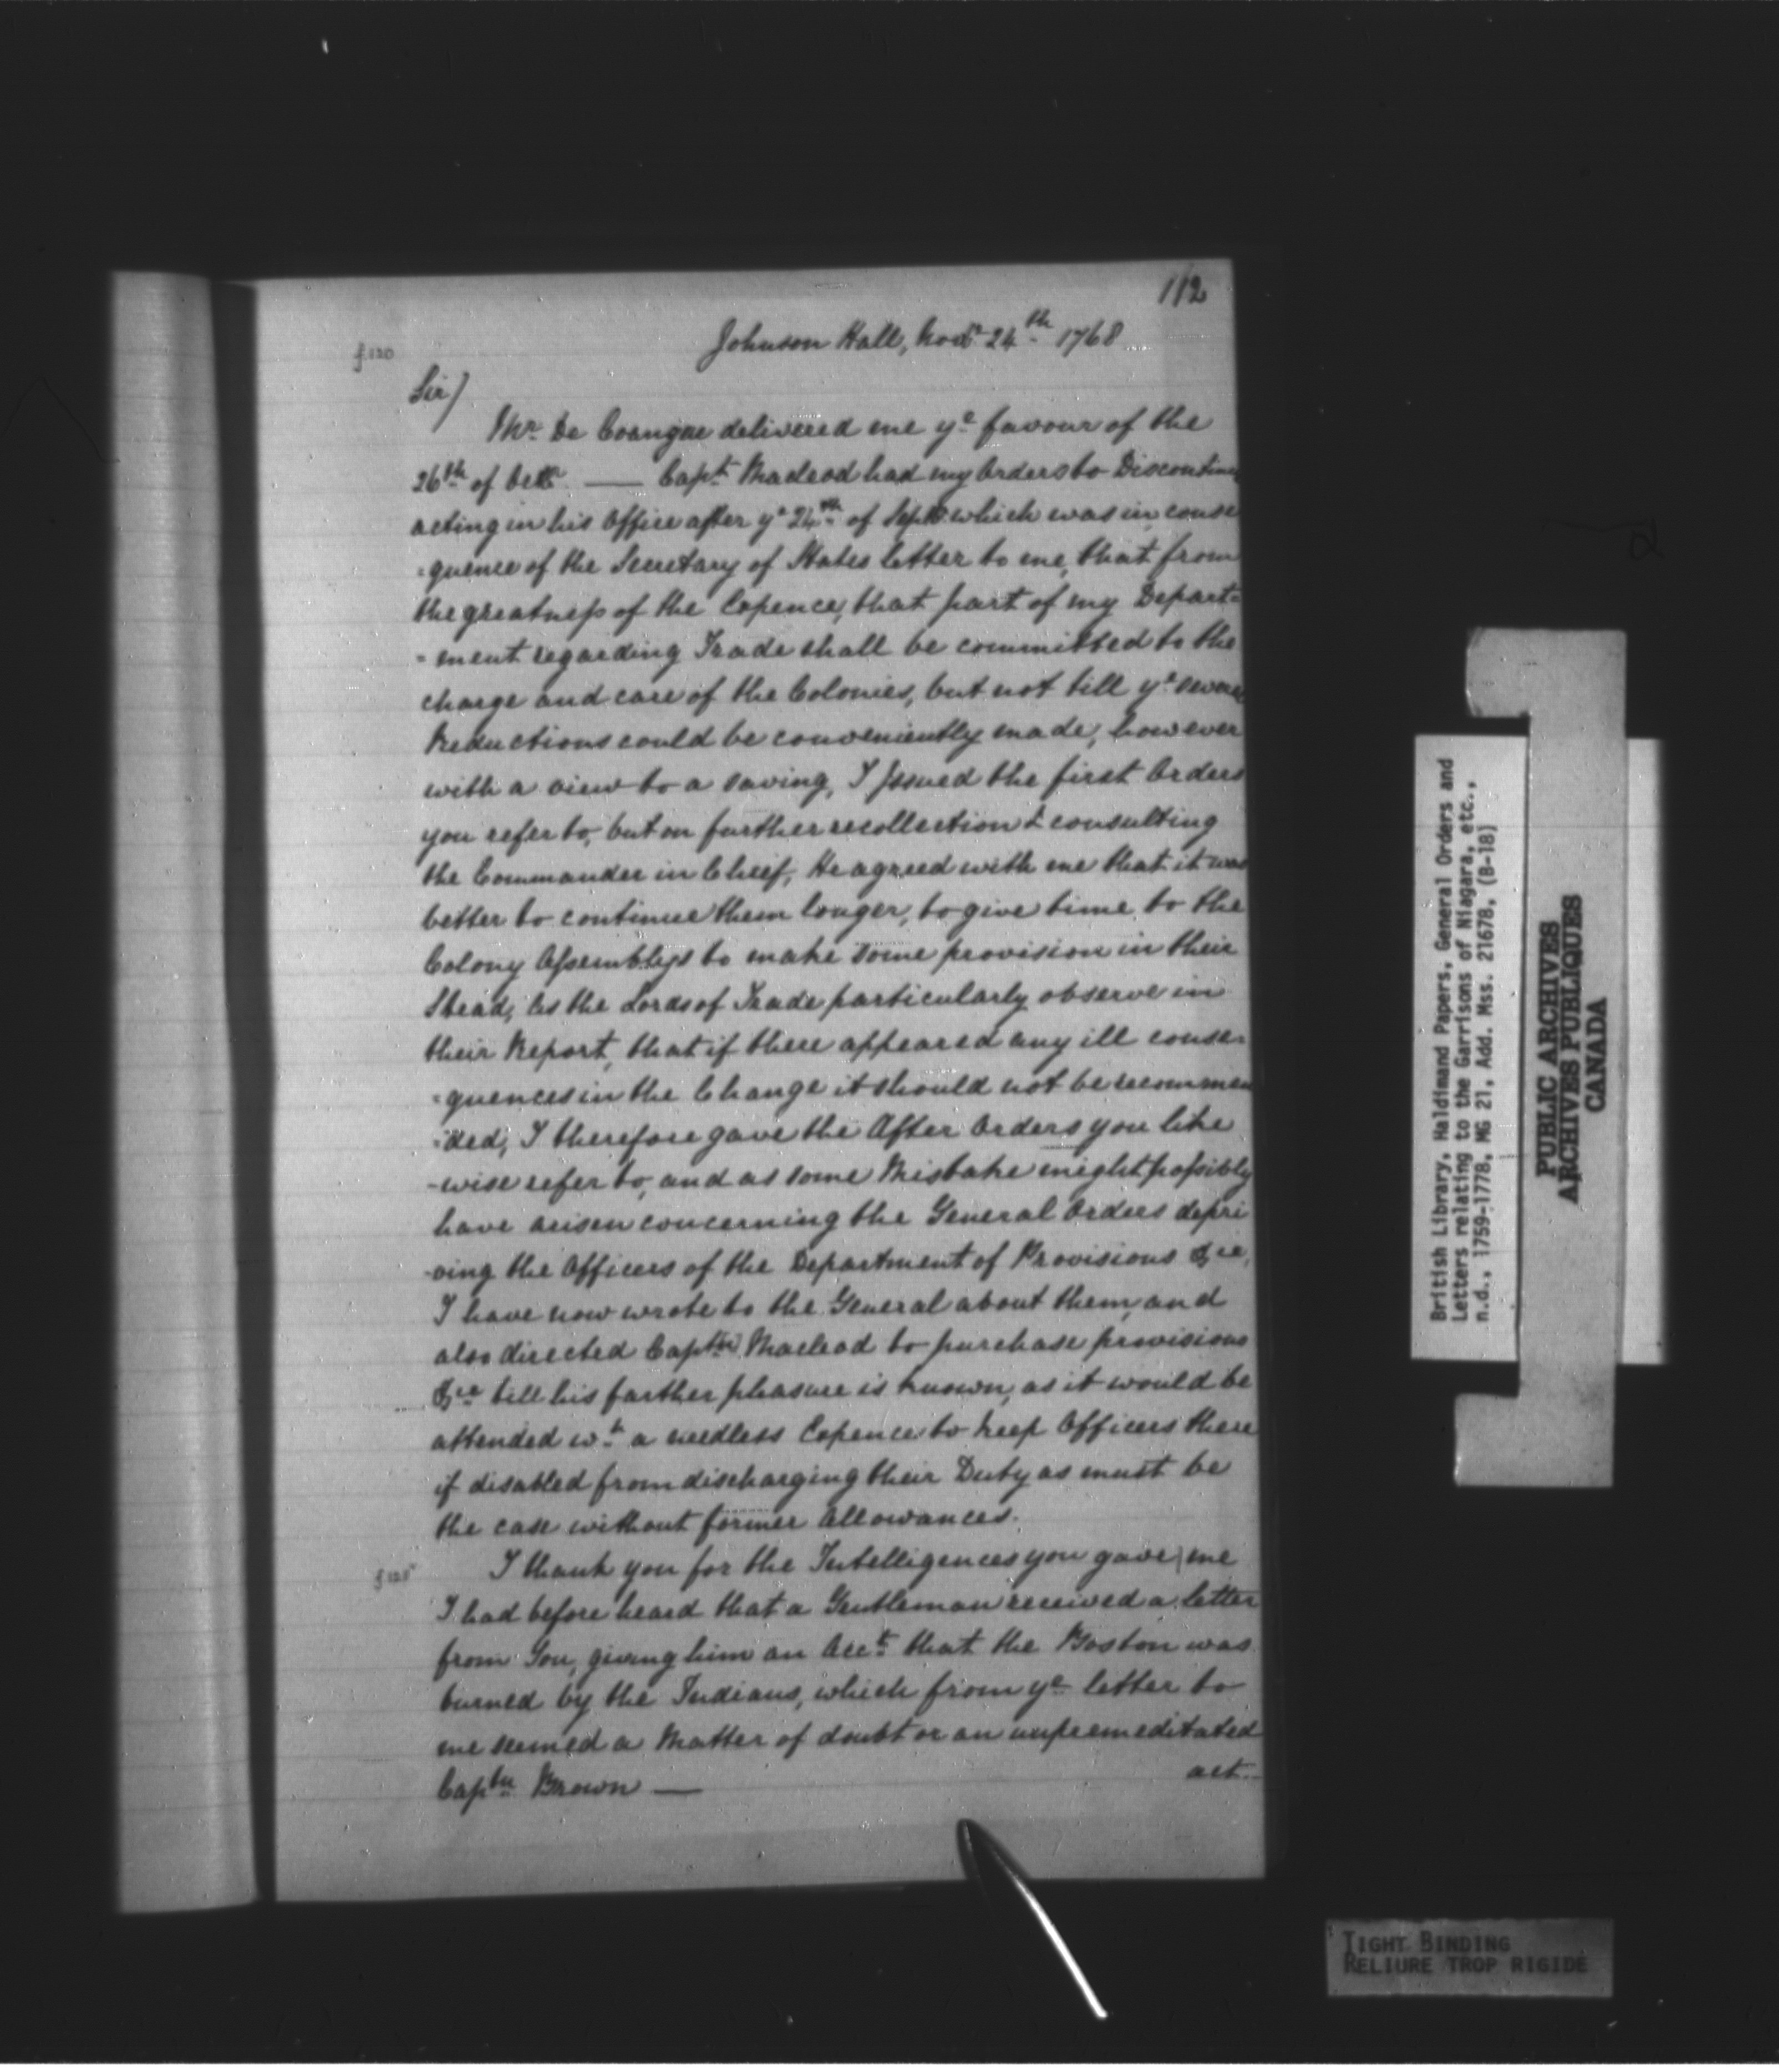 112
Johnson Hall, Novr 24th 1768
f.120
Sir/
Mr De Couagne delivered me yr favour of the
26th of Octr — Capt Macleod had my Orders to Discontinue
acting in his Office after ye 24th of Septr which was in conse
=quence of the Secretary of States letter to me, that from
the greatness of the Expence, that part of my Depart=
=ment regarding Trade shall be committed to the
charge and care of the Colonies, but not till ye several
Reductions could be conveniently made, however
with a view to a saving, I Issued the first Orders
you refer to, but on further recollection & consulting
the Commander in Chief, He agreed with me that it was
better to continue them longer, to give time to the
Colony Assemblys to make some provision in their
Stead, as the Lords of Trade particularly observe in
their Report, that if there appeared any ill conse=
=quences in the Change it should not be recommen
=ded, I therefore gave the After Orders you like
-wise refer to, and as some Mistake might possibly
have arisen concerning the General Orders depri
-ving the Officers of the Department of Provisions &ca,
I have now wrote to the General about them, and
also directed Captn Macleod to purchase provisions
&ca till his farther pleasure is known, as it would be
attended wt a needless Expence to keep Officers there
if disabled from discharging their Duty as must be
the case without former Allowances.
f.120b
I thank you for the Intelligences you gave me
I had before heard that a Gentleman received a letter
from You, giving him an Acct that the Boston was
burned by the Indians, which from yr letter to
me seemed a Matter of doubt or an unpremeditated
act.
Captn Brown —
British Library, Haldimand Papers, General Orders and
Letters relating to the Garrisons of Niagara, etc.,
n.d., 1759-1778, MG 21, Add. Mss. 21678, (B-18)
PUBLIC ARCHIVES
ARCHIVES PUBLIQUES
CANADA
TIGHT BINDING
RELIURE TROP RIGIDE